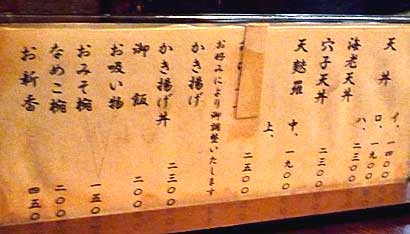 天丼 イ、一四〇〇
ロ、一九〇〇
海老天丼 ハ、二三〇〇
穴子天丼 二三〇〇
天麩羅 中、一九〇〇
上、
二五〇〇
お好みにより御調整いたします
かき揚げ
かき揚げ丼 二三〇〇
御飯 二〇〇
お吸い物
おみそ椀 一五〇
なめこ椀 二〇〇
お新香 四五〇